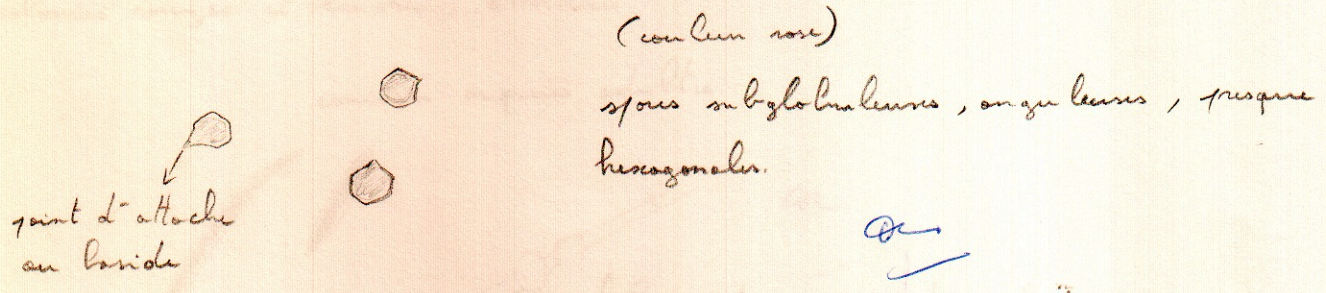 (couleur rose)
spores subglobuleuses, anguleuses, presque
hexagonales.
point d'attache
au baside